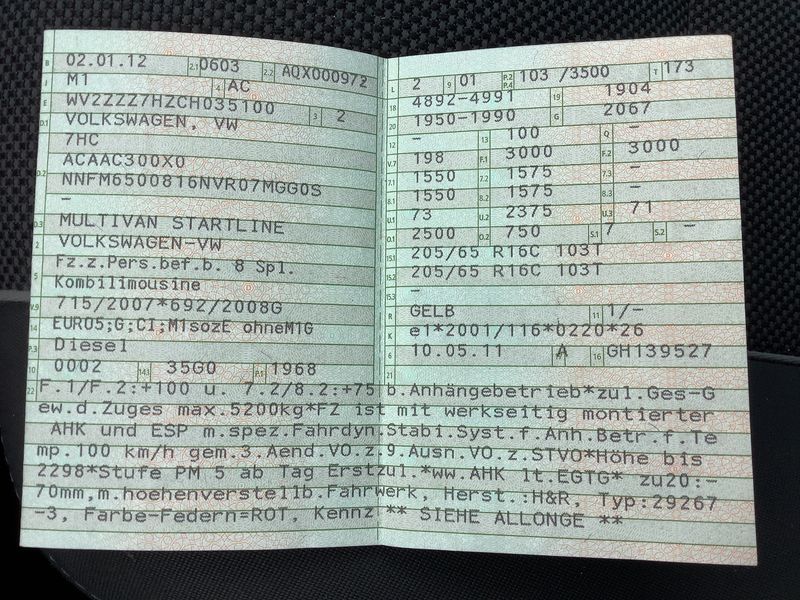 B 02.01.12 2.1 0603 2.2 AQX000972
J M1 4 AC
E WV2ZZZ7HZCH035100 3 2
D.1 VOLKSWAGEN, VW
7HC
ACAAC300X0
D.2 NNFM6500816NVR07MGG0S
-
D.3 MULTIVAN STARTLINE
2 VOLKSWAGEN-VW
Fz.z.Pers.bef.b. 8 Spl.
5 Kombilimousine
V.9 715/2007*692/2008G
14 EURO5;G;CI;M1sozE ohneM1G
P.3 Diesel
10 0002 14.1 35G0 P.1 1968
L 2 9 01 P.2 P.4 103 /3500 T 173
18 4892-4991 19 1904
20 1950-1990 G 2067
- 13 100 Q -
V.7 198 F.1 3000 F.2 3000
7.1 1550 7.2 1575 7.3 -
8.1 1550 8.2 1575 8.3 -
U.1 73 U.2 2375 U.3 71
O.1 2500 O.2 750 S.1 7 S.2 -
15.1 205/65 R16C 103T
15.2 205/65 R16C 103T
15.3 -
R GELB 11 1/-
K e1*2001/116*0220*26
6 10.05.11 A 16 GH139527
22 F.1/F.2:+100 u. 7.2/8.2:+75 b.Anhängebetrieb*zul.Ges-G
ew.d.Zuges max.5200kg*FZ ist mit werkseitig montierter
AHK und ESP m.spez.Fahrdyn.Stabi.Syst.f.Anh.Betr.f.Te
mp.100 km/h gem.3.Aend.VO.z.9.Ausn.VO.z.STVO*Höhe bis
2298*Stufe PM 5 ab Tag Erstzul.*ww.AHK lt.EGTG* zu20:-
70mm,m.hoehenverstellb.Fahrwerk, Herst.:H&R, Typ:29267
-3, Farbe-Federn=ROT, Kennz ** SIEHE ALLONGE **